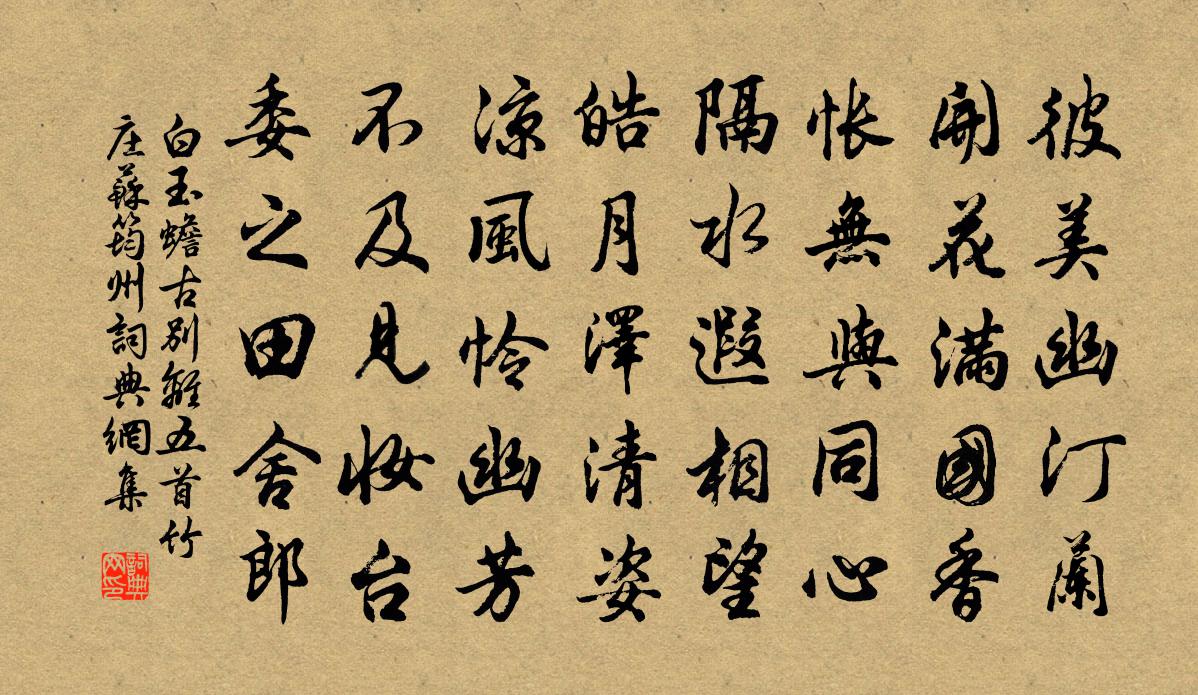 彼美幽汀蘭
開花滿國香
悵無與同心
隔水遐相望
皓月澤清姿
涼風怜幽芳
不及見妝台
委之田舍郎
白玉蟾古別離五首竹
庄蘇筠州詞典網集
詞典網印